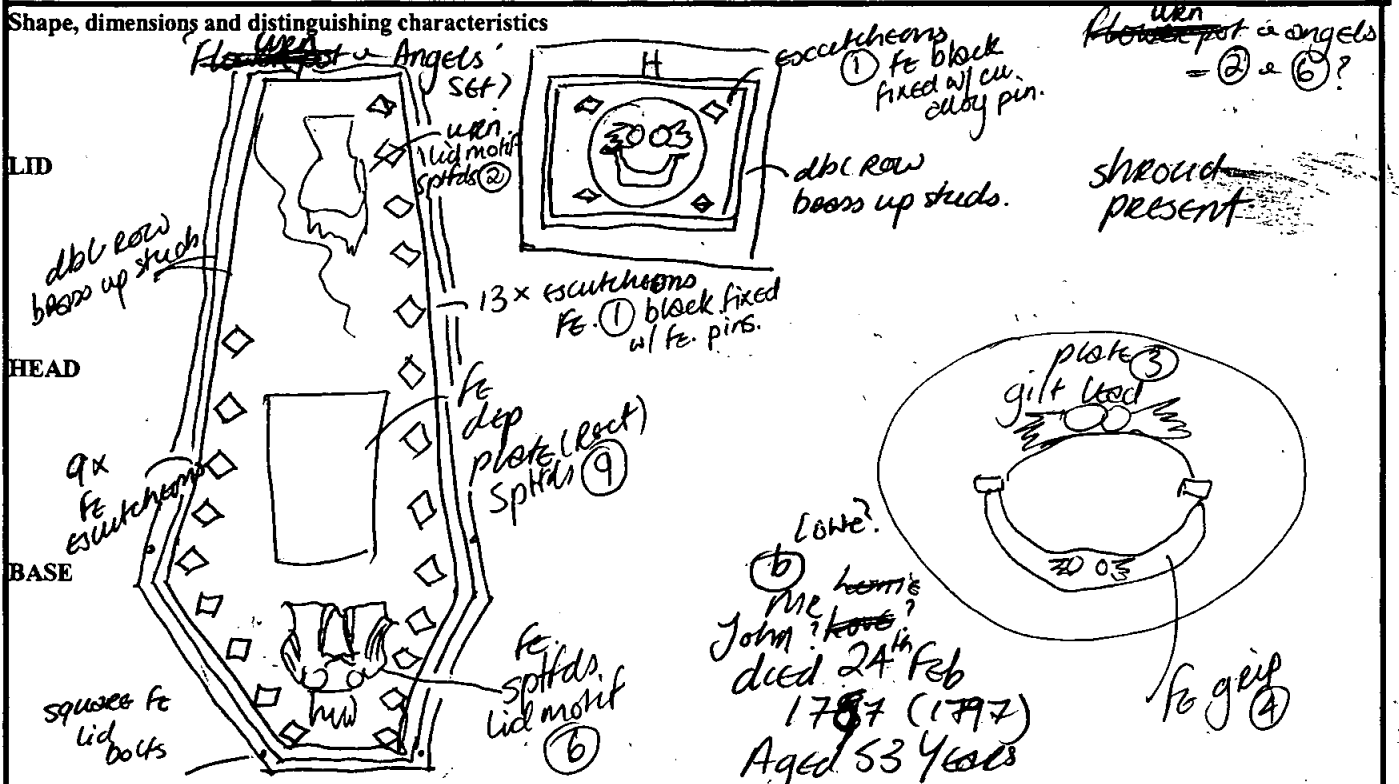 Shape, dimensions and distinguishing characteristics
urn
Flowerpot & Angels'
SET?
LID
HEAD
BASE
urn
lid motif
Sptfds ②
dbl ROW
brass up studs
13 x escutcheons
FE. ① black fixed
w/ FE. pins.
FE
dep
plate (Rect)
Sptfds ⑨
9x
FE
escutcheons
FE
Sptfds
lid motif
⑥
square FE
lid
bolts
H
2003
escutcheons
① FE black
fixed w/ cu
alloy pin.
dbl ROW
brass up studs.
urn
Flowerpot & angels
= ② & ⑥?
shroud
PRESENT
plate ③
gilt lead
2003
FE grip
④
Lowe?
⑥
Mr Lowie
John ? Love?
died 24th Feb
1787 (1797)
Aged 53 Years